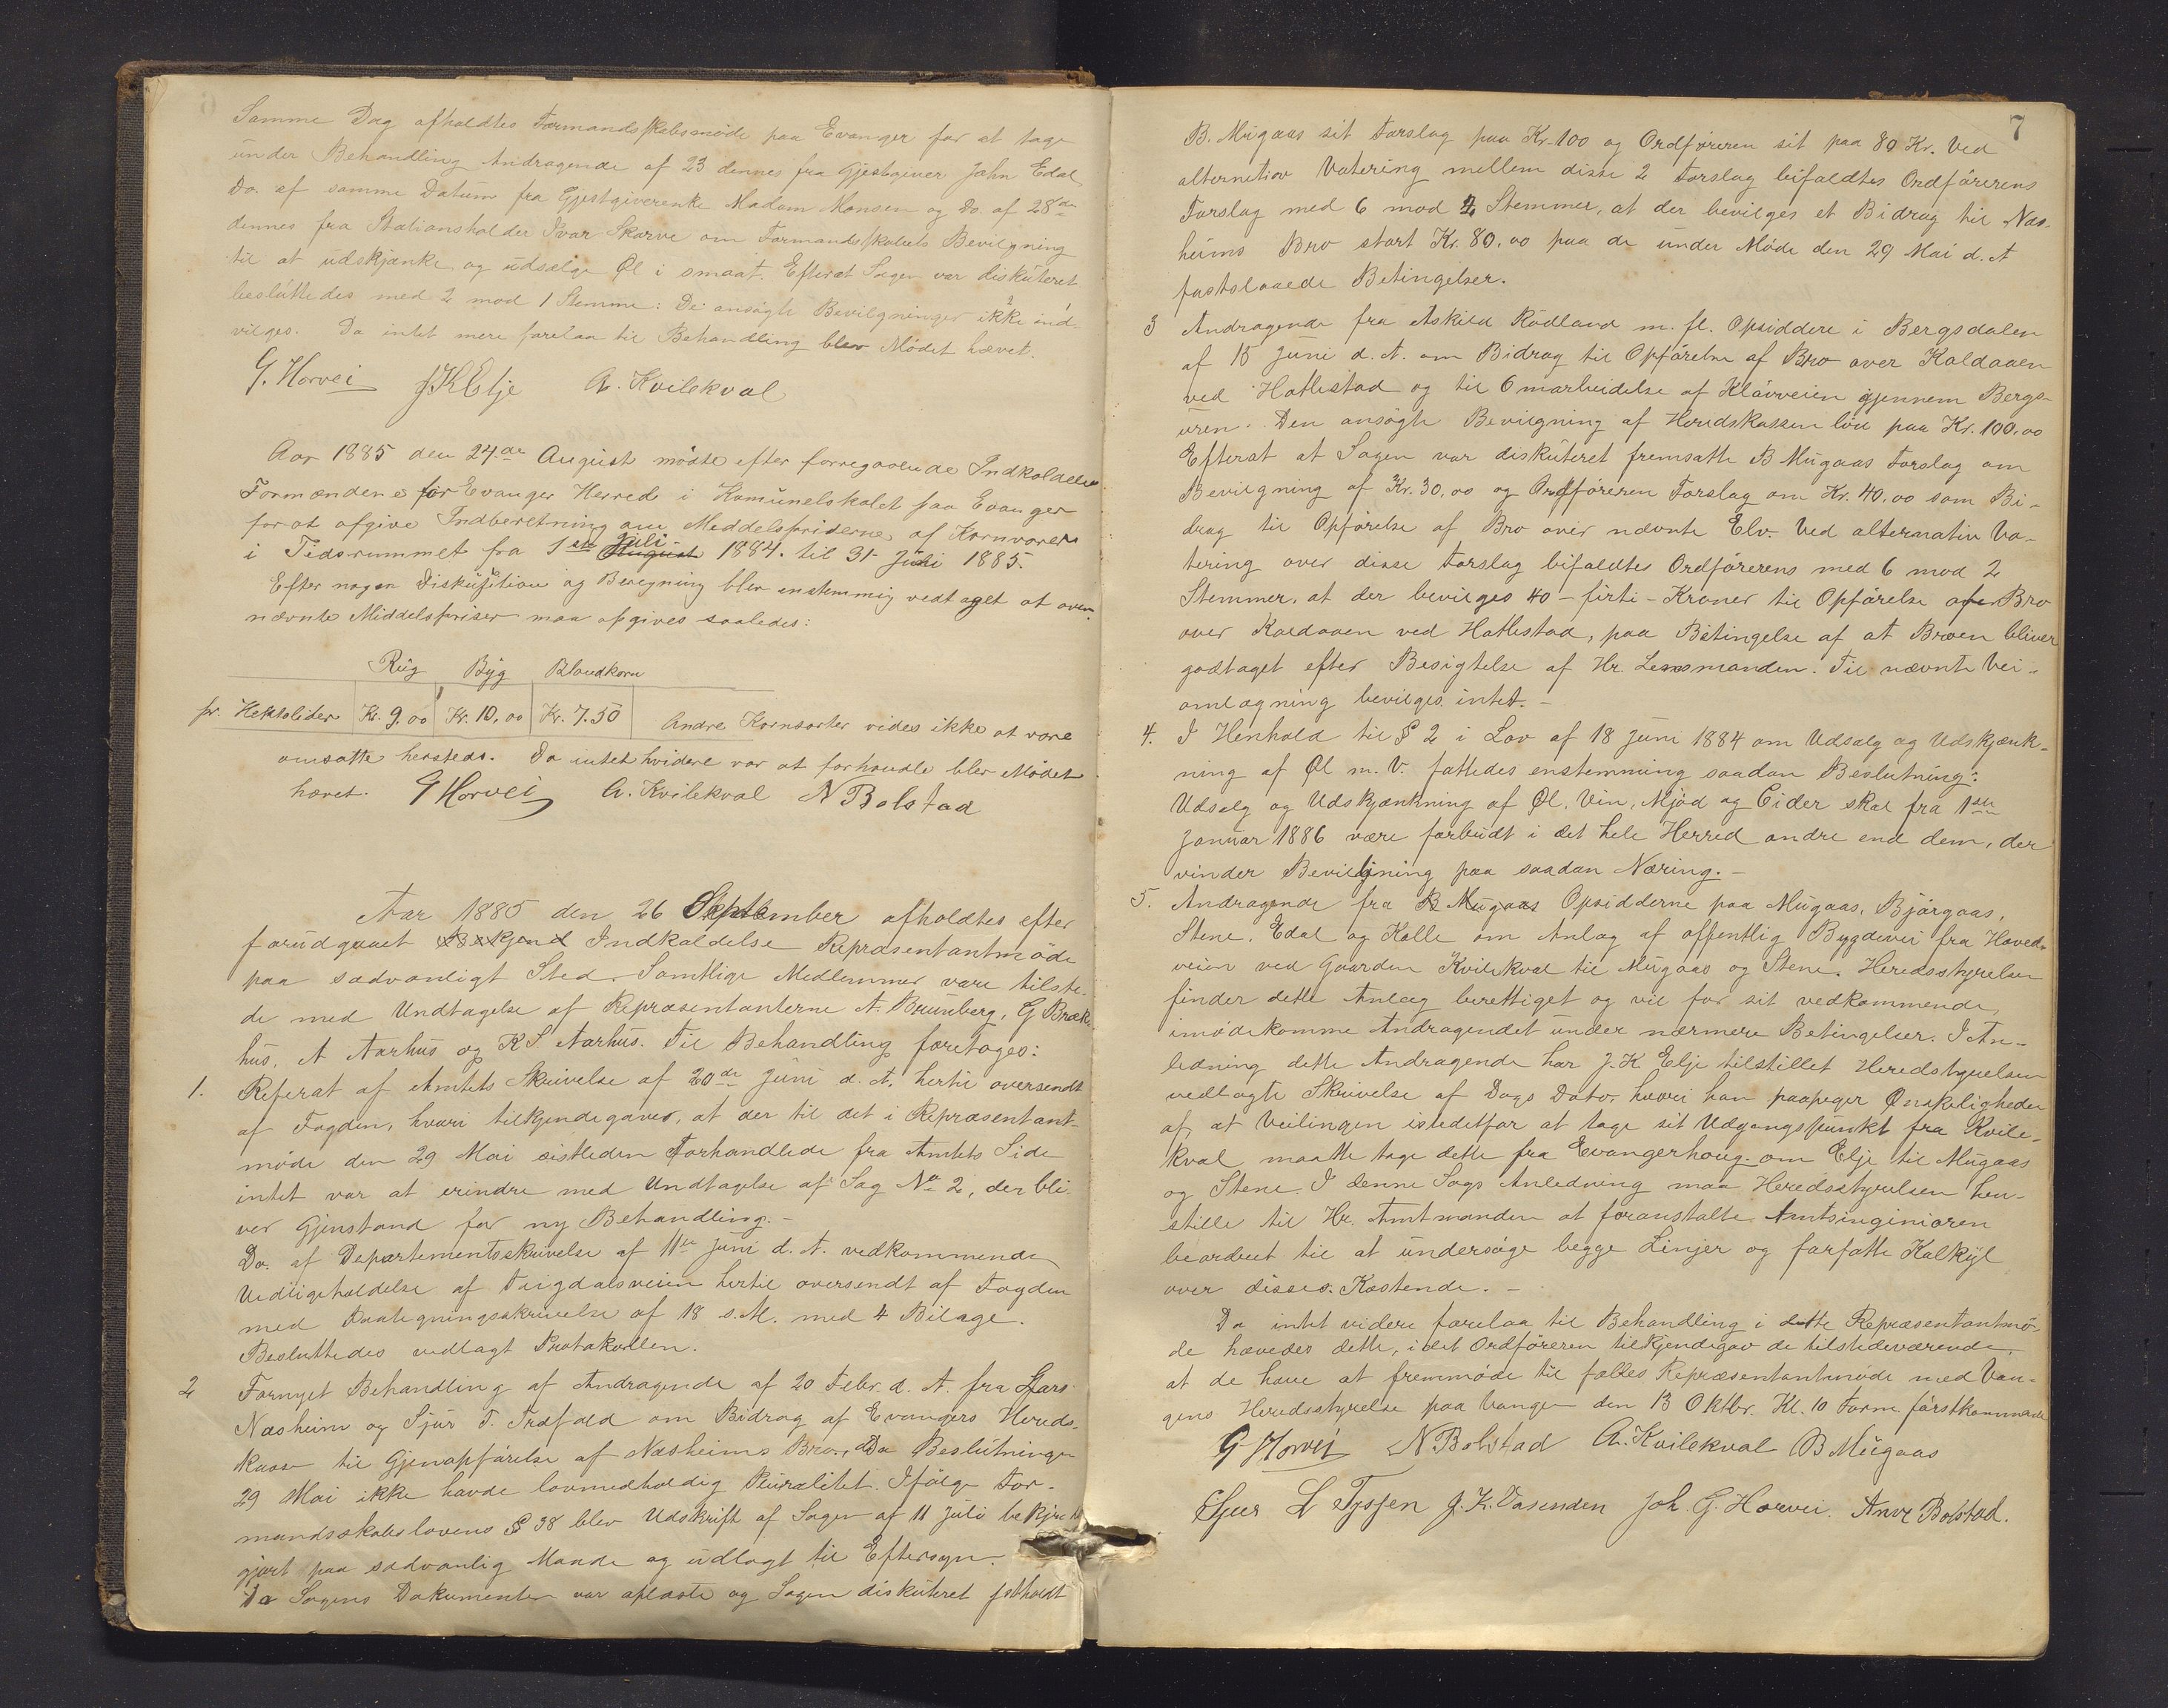 Samme Dag afholdtes Formandsskabsmøde paa Evanger for at tage
under Behandling Andragende af 23 dennes fra Gjestgiver John Edal
Do. af samme Datum fra Gjestgiverenke Madam Monsen og Do. af 28de
dennes fra Stationsholder Ivar Skorve om Formandsskabets Bevilgning
til at udskjænke og udsælge Øl i smaat. Efterat Sagen var diskuteret
besluttedes med 2 mod 1 Stemme: De ansøgte Bevilgninger ikke ind-
vilges. Da intet mere forelaa til Behandling blev Mødet hævet.
G. Horvei JKElje A. Kvilekval
Aar 1885 den 24de August mødte efter forregaaende Indkaldelse
Formændene for Evanger Herred i Komunelokalet paa Evanger
for at afgive Indberetning om Meddelspriderne af Kornvarer
i Tidsrummet fra 1ste August Juli 1884. til 31 Juli 1885.
Efter nogen Diskussion og Beregning blev enstemmig vedtaget at oven-
nævnte Middelspriser maa opgives saaledes:
Rug Byg Blandkorn
pr. Hektoliter Kr. 9.00 Kr. 10,00 Kr. 7.50 Andre Kornsorter vides ikke at vare
omsatte hersteds. Da intet hvidere var at forhandle blev Mødet
hævet. G Horvei A. Kvilekval N Bolstad
Aar 1885 den 26 September afholdtes efter
forudgaaet Bekjend Indkaldelse Repræsentantmøde
paa sædvanligt Sted. Samtlige Medlemmer vare tilste-
de med Undtagelse af Repræsentanterne A. Brunberg, G Bræke-
hus, A Aarhus og K S Aarhus. Til Behandling foretoges:
1. Referat af Amtets Skrivelse af 20de Juni d. A. hertil oversendt
af Fogden, hvori tilkjendegaves, at der til det i Repræsentant-
møde den 29 Mai sistleden Forhandlede fra Amtets Side
intet var at erindre med Undtagelse af Sag No 2, der bli-
ver Gjenstand for ny Behandling.-
Do. af Departementsskrivelse af 11te Juni d. A. vedkommende
Vedligeholdelse af Teigdalsveien hertil oversendt af Fogden
med Paategningsskrivelse af 18 s. M. med 4 Bilage.
Besluttedes vedlagt Protokollen.
2 Fornyet Behandling af Andragende af 20 Febr. d. A. fra Lars
Næsheim og Sjur T. Træfald om Bidrag af Evangers Hereds-
kasse til Gjenopførelse af Næsheims Bro, da Beslutningen
29 Mai ikke havde lovmedholdig Pluralitet. Ifølge For-
mandsskabslovens § 38 blev Udskrift af Sagen af 11 Juli bekjendt
gjort paa sædvanlig Maade og udlagt til Eftersyn.
Da Sagens Dokumenter var oplæste og Sagen diskuteret fastholdt
7
B. Mugaas sit Forslag paa Kr. 100 og Ordføreren sit paa 80 Kr. Ved
alternetiav Votering mellem disse 2 Forslag bifaldtes Ordførerens
Forslag med 6 mod 2 Stemmer, at der bevilges et Bidrag til Næs-
heims Bro stort Kr. 80,00 paa de under Møde den 29 Mai d. A
fastslaaede Betingelser.
3 Andragende fra Askild Rødland m. fl. Opsiddere i Bergsdalen
af 15 Juni d. A. om Bidrag til Opførelse af Bro over Kaldaaen
ved Hatlestad og til Omarbeidelse af Kløvveien gjennem Bergs-
uren. Den ansøgte Bevilgning af Heredskassen lød paa Kr. 100,00
Efterat at Sagen var diskuteret fremsatte B Mugaas Forslag om
Bevilgning af Kr. 30,00 og Ordføreren Forslag om Kr. 40,00 som Bi-
drag til Opførelse af Bro over nævnte Elv. Ved alternativ Vo-
tering over disse Forslag bifaldtes Ordførerens med 6 mod 2
Stemmer, at der bevilges 40 - firti - Kroner til Opførelse af Bro
over Kaldaaen ved Hatlestad, paa Betingelse af at Broen bliver
godtaget efter Besigtelse af Hr. Lensmanden. Til nævnte Vei-
omlægning bevilges intet.-
4. I Henhold til § 2 i Lov af 18 Juni 1884 om Udsalg og Udskjænk-
ning af Øl m. V. fattedes enstemming saadan Beslutning:
Udsalg og Udskjænkning af Øl, Vin, Mjød og Cider skal fra 1ste
Januar 1886 være forbudt i det hele Herred andre end dem, der
vinder Bevilgning paa saadan Næring.-
5. Andragende fra B Mugaas Opsidderne paa Mugaas, Bjørgaas,
Stene, Edal og Kalle om Anlæg af offentlig Bygdevei fra Hoved-
veien ved Gaarden Kvilekval til Mugaas og Stene. Heredsstyrelsen
finder dette Anlæg berettiget og vil for sit vedkommende
imødekomme Andragendet under nærmere Betingelser. I An-
ledning dette Andragende har J. K Elje tilstillet Heredstyrelsen
vedlagte Skrivelse af Dags Dato, hvori han paapeger Ønskeligheden
af at Veilingen istedetfor at tage sit Udgangspunkt fra Kvile-
kval maatte tage dette fra Evangerhoug om Elje til Mugaas
og Stene. I denne Sags Anledning maa Heredsstyrelsen hen-
stille til Hr. Amtmanden at foranstalte Amtsingeniøren
beordret til at undersøge begge Linjer og forfatte Kalkyl
over disses Kostende. -
Da intet videre forelaa til Behandling i dette Repræsentantmø-
de hævedes dette, idet Ordføreren tilkjendegav de tilstedeværende,
at de have at fremmøde til fælles Repræsentantmøde med Van-
gens Heredsstyrelse paa Vangen den 13 Oktbr. Kl. 10 Form. førstkommende
G Horvei N Bolstad A. Kvilekval B Mugaas
Sjur L Tyssen J. K. Vasenden Joh. G. Horvei. Anve Bolstad.